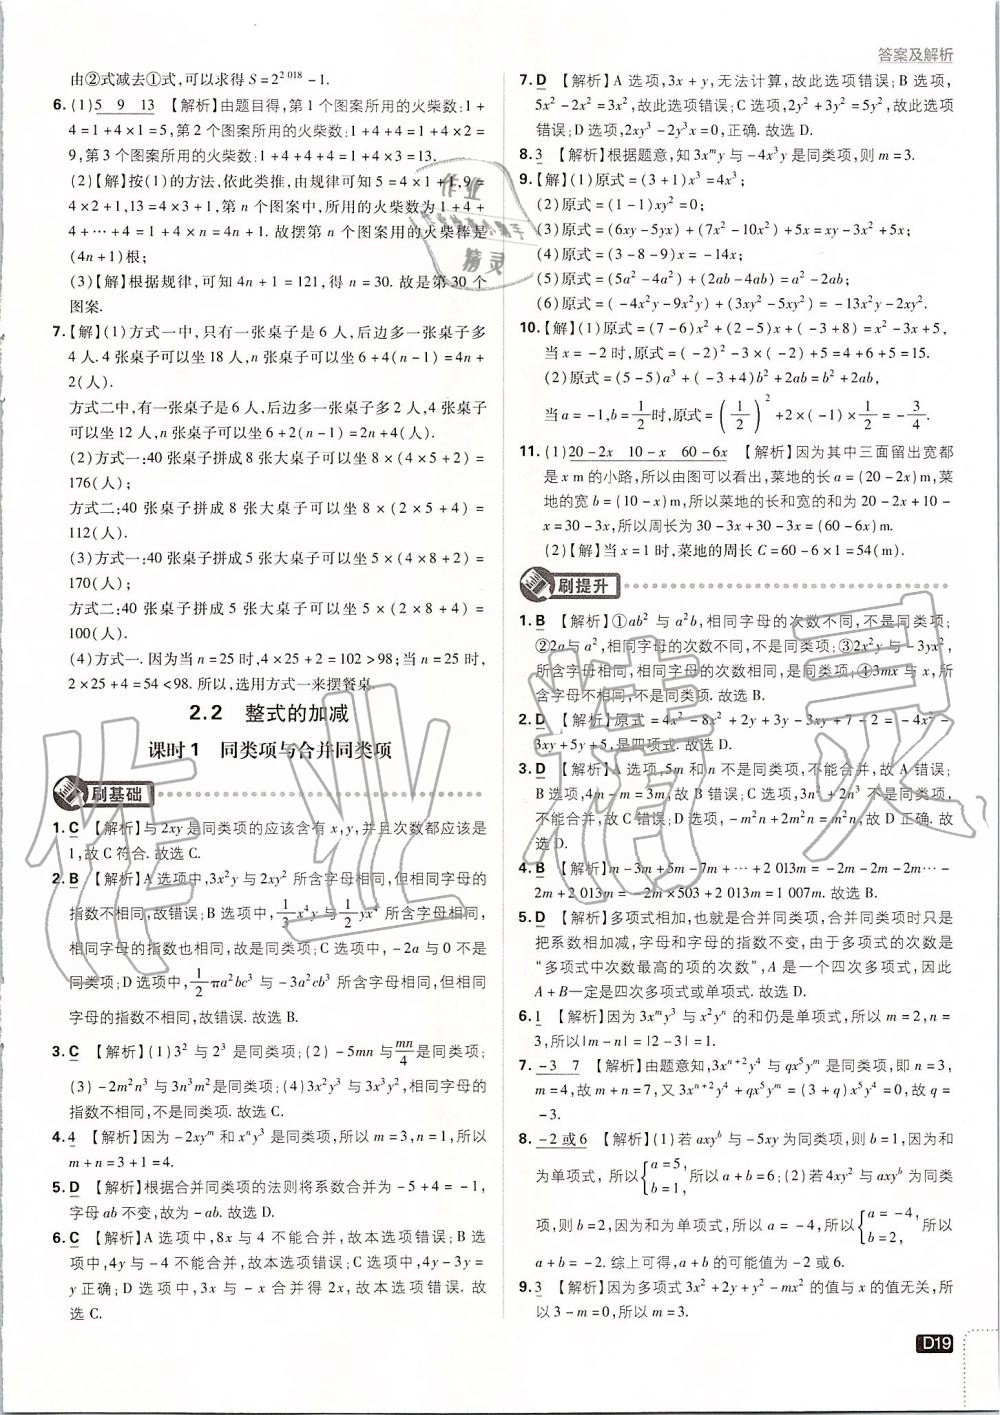 答案及解析
由②式减去①式,可以求得 S=2^{2 018}-1.
6. (1)5 9 13 【解析】由题目得,第 1 个图案所用的火柴数:1+
4=1+4×1=5,第 2 个图案所用的火柴数:1+4+4=1+4×2=
9,第 3 个图案所用的火柴数:1+4+4+4=1+4×3=13.
(2)【解】按(1)的方法,依此类推,由规律可知 5=4×1+1,9=
4×2+1,13=4×3+1,第 n 个图案中,所用的火柴数为 1+4+
4+…+4=1+4×n=4n+1. 故摆第 n 个图案用的火柴棒是
(4n+1)根;
(3)【解】根据规律,可知 4n+1=121,得 n=30. 故是第 30 个
图案.
7.【解】(1)方式一中,只有一张桌子是 6 人,后边多一张桌子多
4 人.4 张桌子可以坐 18 人,n 张桌子可以坐 6+4(n-1)=4n+
2(人).
方式二中,有一张桌子是 6 人,后边多一张桌子多 2 人,4 张桌子
可以坐 12 人,n 张桌子可以坐 6+2(n-1)=2n+4(人).
(2)方式一:40 张桌子拼成 8 张大桌子可以坐 8×(4×5+2)=
176(人);
方式二:40 张桌子拼成 8 张大桌子可以坐 8×(2×5+4)=
112(人).
(3)方式一:40 张桌子拼成 5 张大桌子可以坐 5×(4×8+2)=
170(人);
方式二:40 张桌子拼成 5 张大桌子可以坐 5×(2×8+4)=
100(人).
(4)方式一. 因为当 n=25 时,4×25+2=102>98;当 n=25 时,
2×25+4=54<98. 所以,选用方式一来摆餐桌.
2.2 整式的加减
课时 1 同类项与合并同类项
刷基础
1. C 【解析】与 2xy 是同类项的应该含有 x,y,并且次数都应该是
1,故 C 符合. 故选 C.
2. B 【解析】A 选项中,3x²y 与 2xy² 所含字母相同,但相同字母的
指数不相同,故错误;B 选项中,1/3 x⁴y 与 1/2 yx⁴ 所含字母相同,
相同字母的指数也相同,故是同类项;C 选项中,-2a 与 0 不是
同类项;D 选项中,1/2 πa²bc³ 与 -3a²cb³ 所含字母相同,但相同
字母的指数不相同,故错误. 故选 B.
3. C 【解析】(1)3² 与 2³ 是同类项;(2)-5mn 与 mn/4 是同类项;
(3)-2m²n³ 与 3n³m² 是同类项;(4)3x²y³ 与 3x³y²,相同字母的
指数不相同,不是同类项. 故选 C.
4. 4 【解析】因为 -2xyᵐ 和 xⁿy³ 是同类项,所以 m=3,n=1,所以
m+n=3+1=4.
5. D 【解析】根据合并同类项的法则将系数合并为 -5+4=-1,
字母 ab 不变,故为 -ab. 故选 D.
6. C 【解析】A 选项中,8x 与 4 不能合并,故本选项错误;B 选
项中,4y 与 -4 不能合并,故本选项错误;C 选项中,4y-3y=
y 正确;D 选项中,3x 与 -x 合并得 2x,故本选项错误. 故
选 C.
7. D 【解析】A 选项,3x+y,无法计算,故此选项错误;B 选项,
5x²-2x²=3x²,故此选项错误;C 选项,2y²+3y²=5y²,故此选项
错误;D 选项,2xy³-2y³x=0,正确. 故选 D.
8. 3 【解析】根据题意,知 3xᵐy 与 -4x³y 是同类项,则 m=3.
9.【解】(1)原式=(3+1)x³=4x³;
(2)原式=(1-1)xy²=0;
(3)原式=(6xy-5yx)+(7x²-10x²)+5x=xy-3x²+5x;
(4)原式=(3-8-9)x=-14x;
(5)原式=(5a²-4a²)+(2ab-4ab)=a²-2ab;
(6)原式=(-4x²y-9x²y)+(3xy²-5xy²)=-13x²y-2xy².
10.【解】(1)原式=(7-6)x²+(2-5)x+(-3+8)=x²-3x+5,
当 x=-2 时,原式=(-2)²-3×(-2)+5=4+6+5=15.
(2)原式=(5-5)a³+(-3+4)b²+2ab=b²+2ab,
当 a=-1,b=1/2 时,原式=(1/2)²+2×(-1)×1/2=-3/4.
11. (1)20-2x 10-x 60-6x 【解析】因为其中三面留出宽都
是 x m 的小路,所以由图可以看出,菜地的长 a=(20-2x)m,菜
地的宽 b=(10-x)m,所以菜地的长和宽的和为 20-2x+10-
x=30-3x,所以周长为 30-3x+30-3x=(60-6x)m.
(2)【解】当 x=1 时,菜地的周长 C=60-6×1=54(m).
刷提升
1. B 【解析】①ab² 与 a²b,相同字母的次数不同,不是同类项;
②2a 与 a²,相同字母的次数不同,不是同类项;③2x²y 与 -3yx²,
所含字母相同,相同字母的次数相同,是同类项;④3mx 与 x,所
含字母不相同,不是同类项. 故选 B.
2. D 【解析】原式=4x²-8x²+2y+3y-4xy+xy+7-2=-4x²-
3xy+5y+5,是四项式. 故选 D.
3. D 【解析】A 选项,5m 和 n 不是同类项,不能合并,故 A 错误;
B 选项,4m-m=3m,故 B 错误;C 选项,3n²+2n³ 不是同类项,
不能合并,故 C 错误;D 选项,-m²n+2m²n=m²n,故 D 正确. 故
选 D.
4. B 【解析】m-3m+5m-7m+…+2 013m=-2m-2m-2m…-
2m+2 013m=-2m×503+2 013m=1 007m. 故选 B.
5. D 【解析】多项式相加,也就是合并同类项,合并同类项时只是
把系数相加减,字母和字母的指数不变,由于多项式的次数是
“多项式中次数最高的项的次数”,A 是一个四次多项式,因此
A+B一定是四次多项式或单项式. 故选 D.
6. 1 【解析】因为 3xᵐy³ 与 x²yⁿ 的和仍是单项式,所以 m=2,n=
3,所以|m-n|=|2-3|=1.
7. -3 7 【解析】由题意知,3xⁿ⁺²y⁴ 与 qx⁵yᵐ 是同类项,即 n=3,
m=4,故 m+n=7,又 3xⁿ⁺²y⁴+qx⁵yᵐ=(3+q)x⁵y⁴=0,故 q=
-3.
8. -2 或 6 【解析】(1)若 axyᵇ 与 -5xy 为同类项,则 b=1,因为和
为单项式,所以{a=5, b=1,所以 a+b=6;(2)若 4xy² 与 axyᵇ 为同类
项,则 b=2,因为和为单项式,所以{a=-4, b=2,所以
a+b=-2. 综上可得,a+b 的可能值为 -2 或 6.
9. 3 【解析】因为多项式 3x²+2y+y²-mx² 的值与 x 的值无关,所
以 3-m=0,所以 m=3.
D19
作业精灵